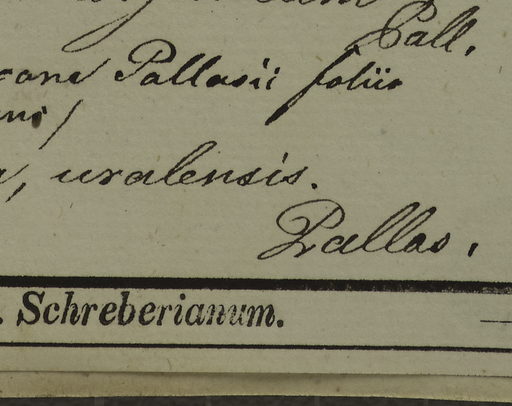 Pall.
Pallasii foliis
a, uralensis.
Pallas.
. Schreberianum.